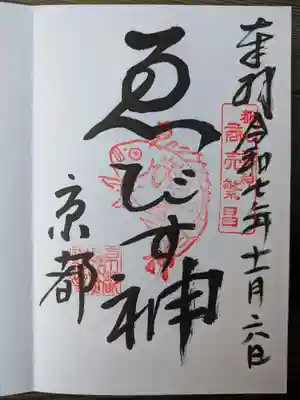 奉拝 令和七年 十一月 六日
商売繁昌
ゑびす神
京都